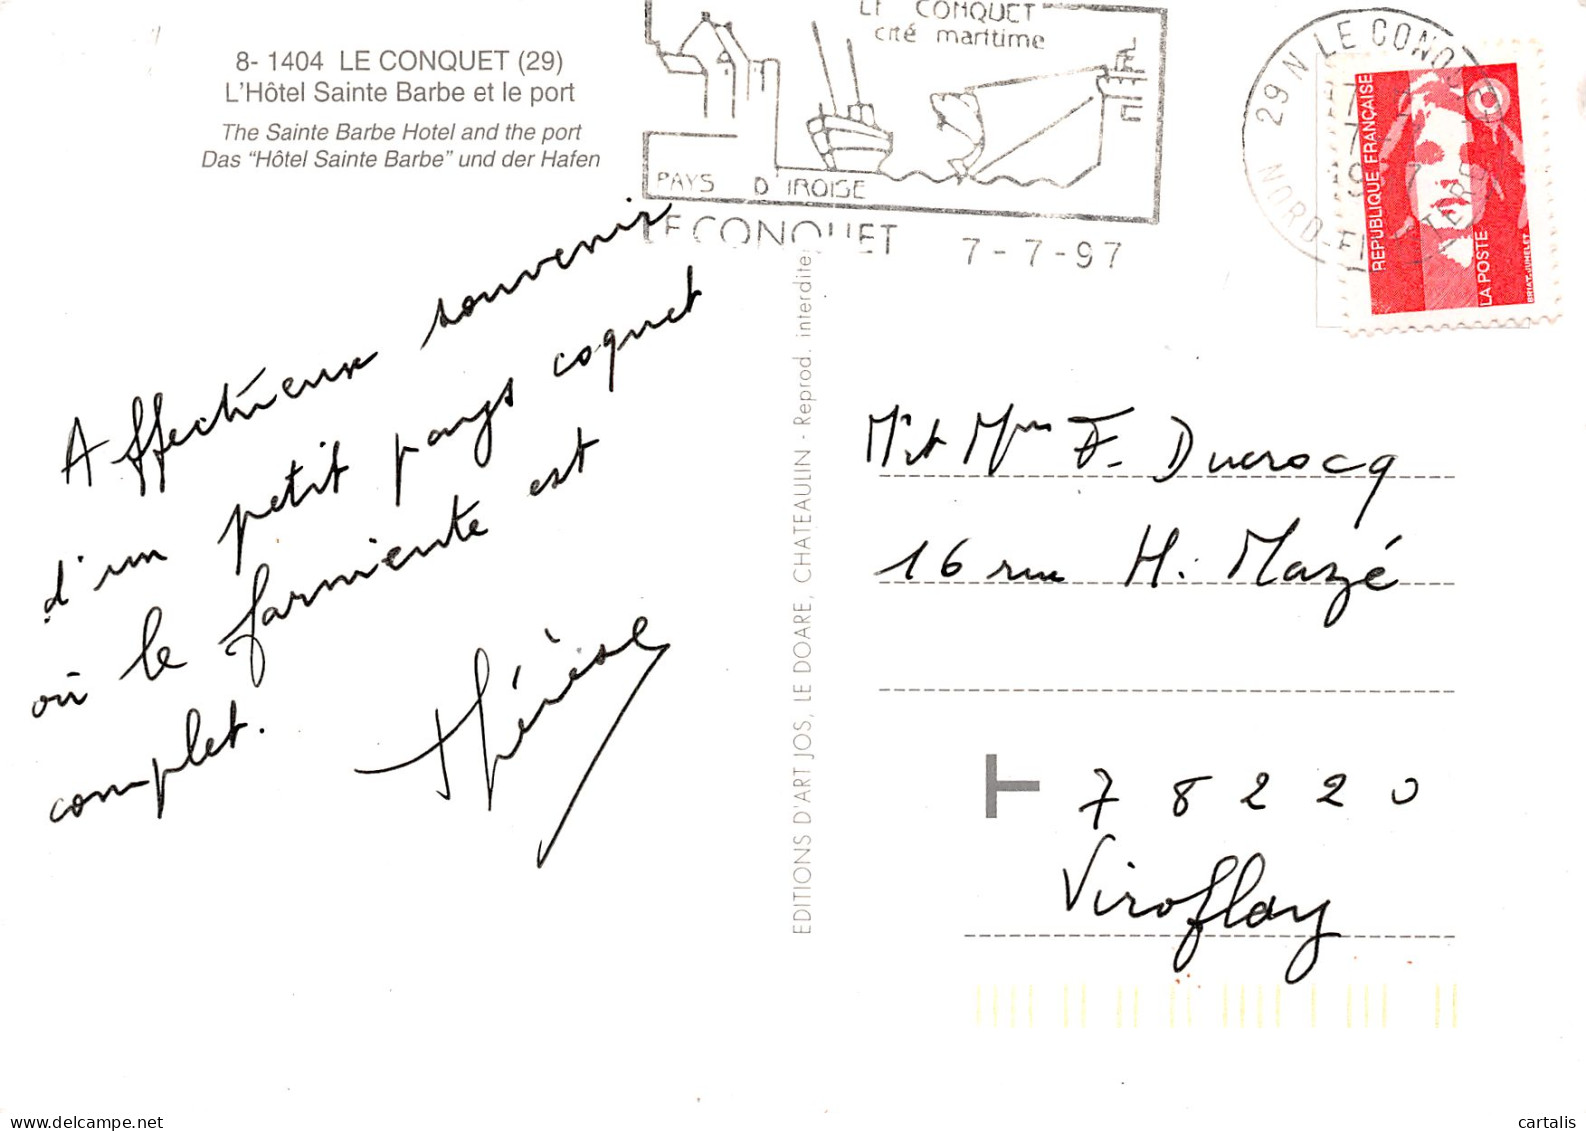 8- 1404 LE CONQUET (29)
L'Hôtel Sainte Barbe et le port
The Sainte Barbe Hotel and the port
Das "Hôtel Sainte Barbe" und der Hafen
LE CONQUET
cité maritime
PAYS D'IROISE
LE CONQUET 7-7-97
29 N LE CONQUET
NORD-FINISTERE
REPUBLIQUE FRANÇAISE
LA POSTE
BRIAT-JUMELET
Affectueux souvenir
d'un petit pays coquet
où le farniente est
complet.
Thérèse
EDITIONS D'ART JOS, LE DOARE, CHATEAULIN - Reprod. interdite
Mr et Mme F. Ducrocq
16 rue H. Mazé
T 78220
Viroflay
cartalis